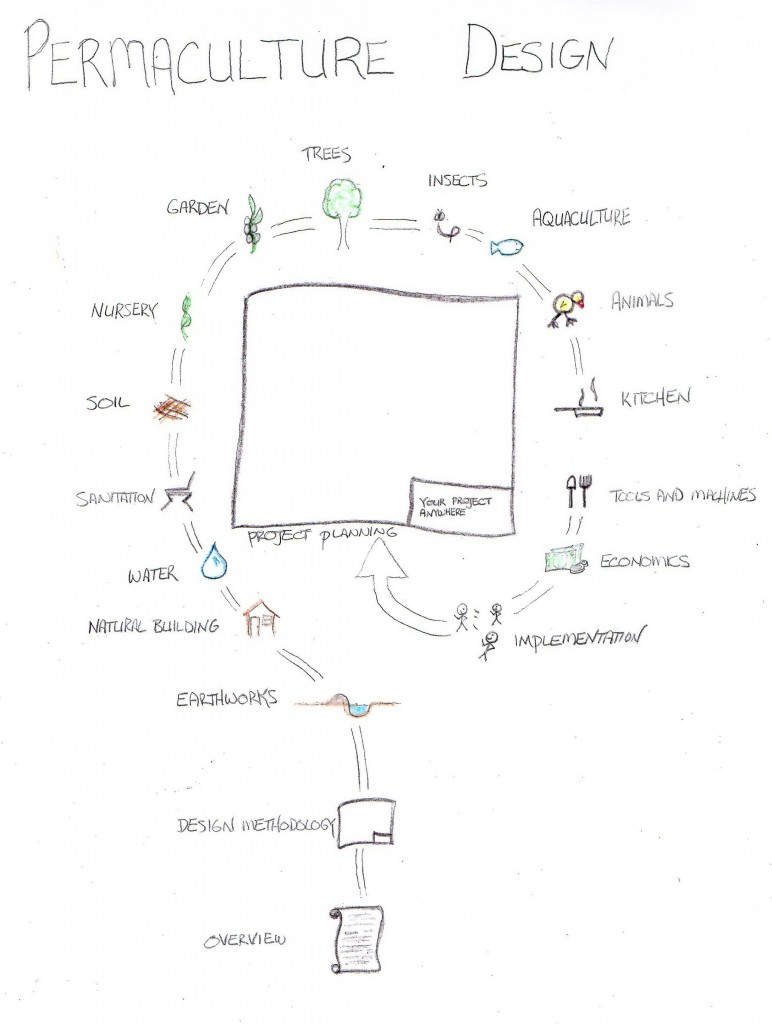 PERMACULTURE DESIGN
TREES
INSECTS
GARDEN
AQUACULTURE
NURSERY
ANIMALS
SOIL
KITCHEN
SANITATION
TOOLS AND MACHINES
YOUR PROJECT
ANYWHERE
PROJECT PLANNING
WATER
ECONOMICS
NATURAL BUILDING
IMPLEMENTATION
EARTHWORKS
DESIGN METHODOLOGY
OVERVIEW